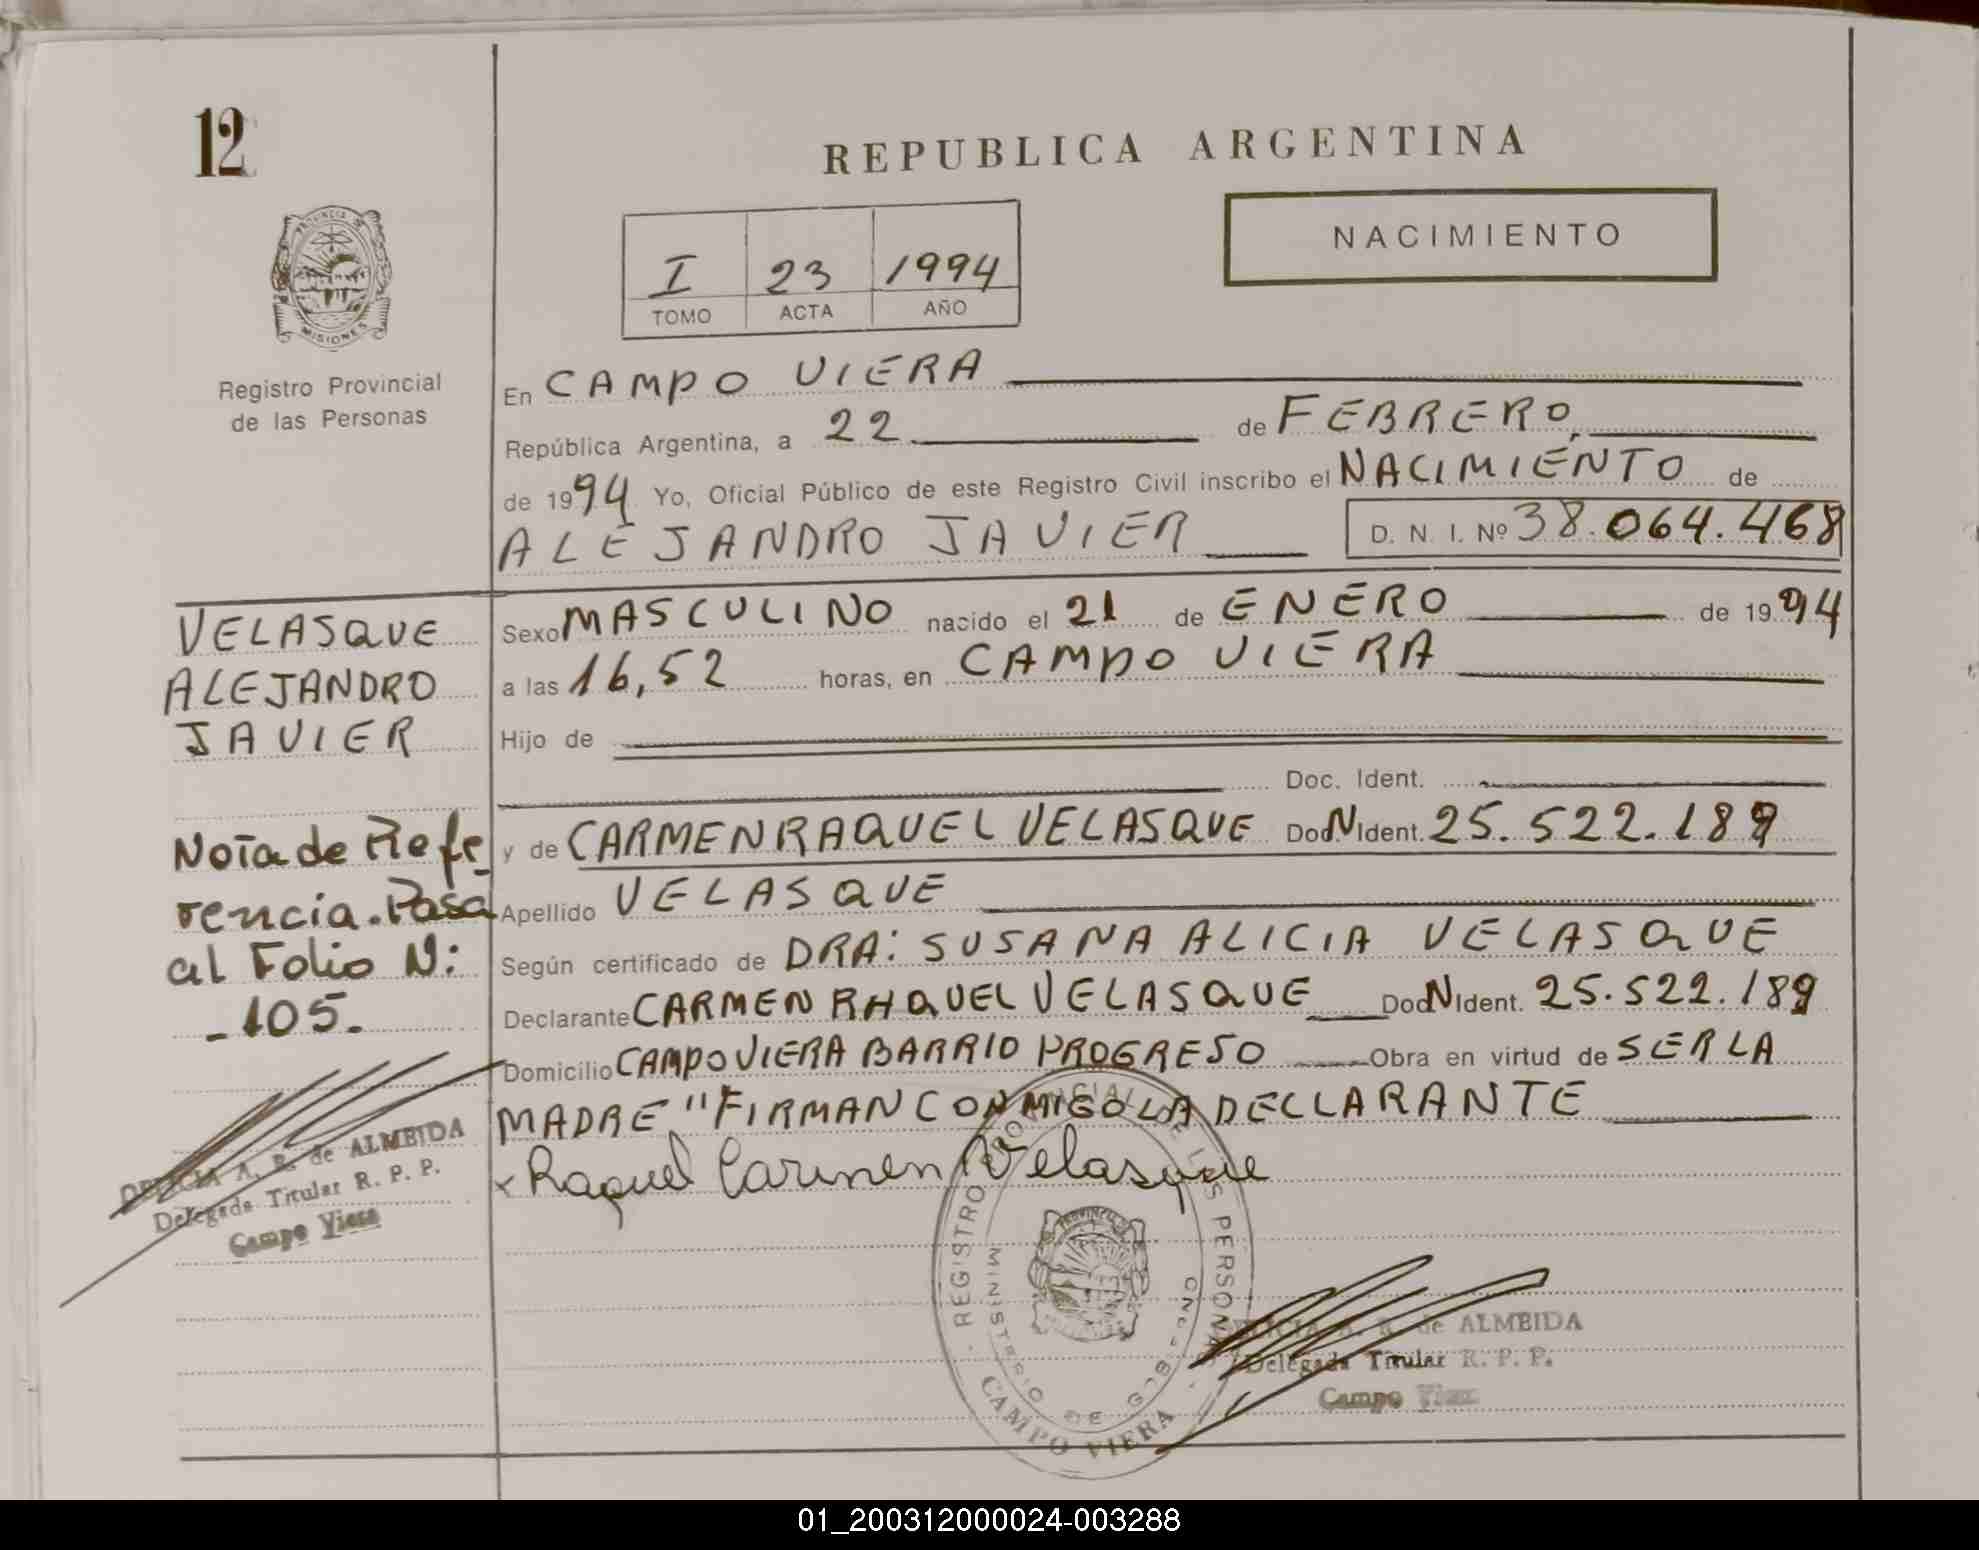 12
REPUBLICA ARGENTINA
NACIMIENTO
I 23 1994
TOMO ACTA AÑO
PROVINCIA DE
MISIONES
Registro Provincial
de las Personas
En CAMPO VIERA
República Argentina, a 22 de FEBRERO,
de 1994 Yo, Oficial Público de este Registro Civil inscribo el NACIMIENTO de
ALEJANDRO JAVIER D. N. I. Nº 38.064.468
VELASQUE
ALEJANDRO
JAVIER
Sexo MASCULINO nacido el 21 de ENERO de 1994
a las 16,52 horas, en CAMPO VIERA
Hijo de
Doc. Ident.
Nota de Refe
rencia. Pasa
al Folio N:
-105.
y de CARMEN RAQUEL VELASQUE DocN Ident. 25.522.189
Apellido VELASQUE
Según certificado de DRA: SUSANA ALICIA VELASQUE
Declarante CARMEN RAQUEL VELASQUE DocN Ident. 25.522.189
Domicilio CAMPO VIERA BARRIO PROGRESO Obra en virtud de SER LA
MADRE "FIRMAN CONMIGO LA DECLARANTE
x Raquel Carmen Velasque
A. R. de ALMEIDA
Delegada Titular R. P. P.
Campo Viera
REGISTRO PROVINCIAL DE LAS PERSONAS
MINISTERIO DE GOB.
CAMPO VIERA
A. R. de ALMEIDA
Delegada Titular R. P. P.
Campo Viera
01_200312000024-003288